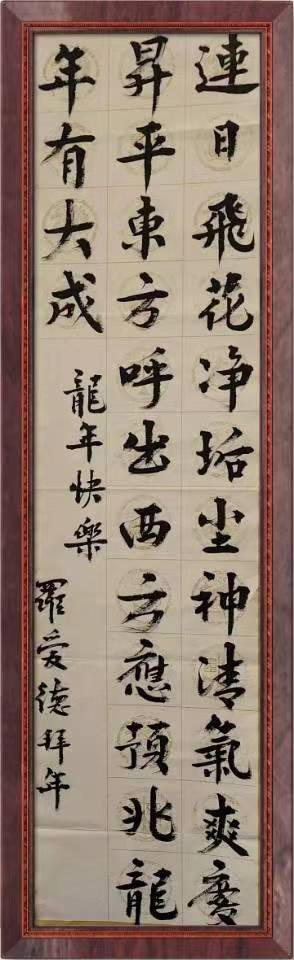 連日飛花净垢尘神清氣爽慶
昇平東方呼出西方應預兆龍
年有大成
龍年快樂
羅愛德拜年